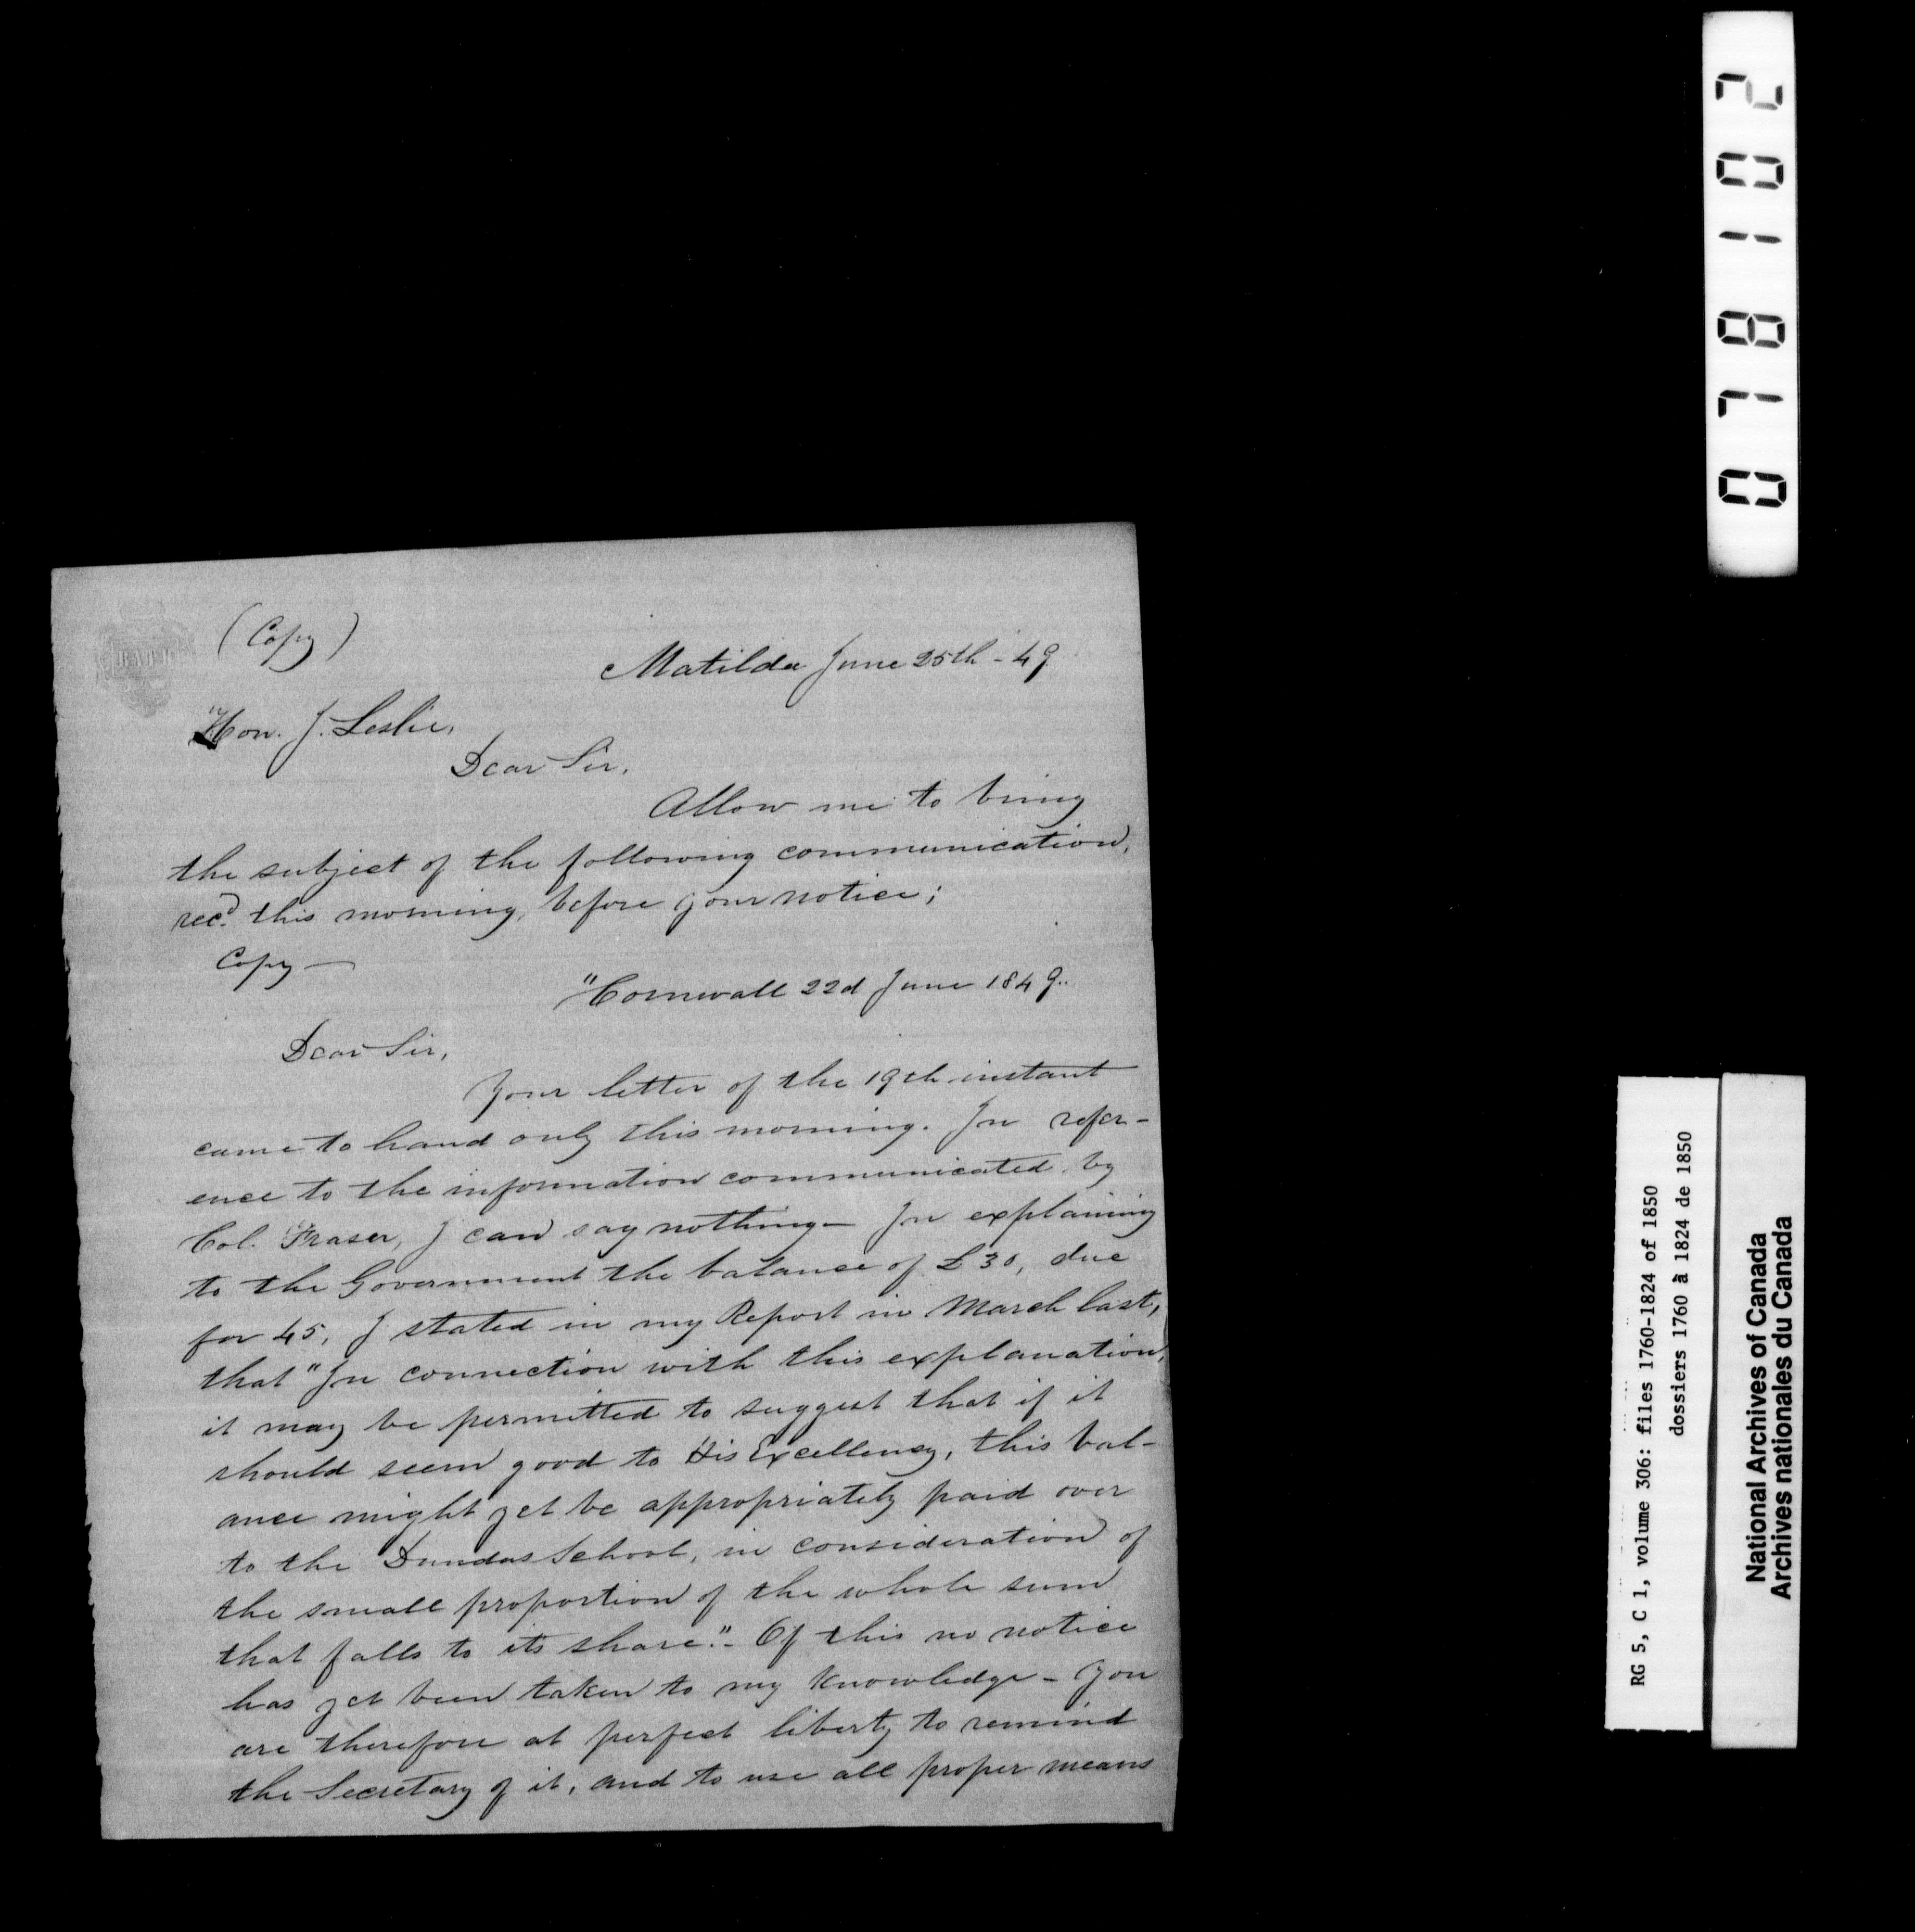 (Copy)
Matilda June 25th - 49
Hon. J. Leslie,
Dear Sir,
Allow me to bring
the subject of the following communication,
recd. this morning, before your notice;
Copy —
"Cornwall 22d June 1849..
Dear Sir,
Your letter of the 19th instant
came to hand only this morning. In refer-
ence to the information communicated by
Col. Fraser, I can say nothing — In explaining
to the Government the balance of £30, due
for 45, I stated in my Report in March last,
that "In connection with this explanation,
it may be permitted to suggest that if it
should seem good to His Excellency, this bal-
ance might yet be appropriately paid over
to the Dundas School, in consideration of
the small proportion of the whole sum
that falls to its share." - Of this no notice
has yet been taken to my knowledge - You
are therefore at perfect liberty to remind
the Secretary of it, and to use all proper means
078102
RG 5, C 1, volume 306: files 1760-1824 of 1850
dossiers 1760 à 1824 de 1850
National Archives of Canada
Archives nationales du Canada